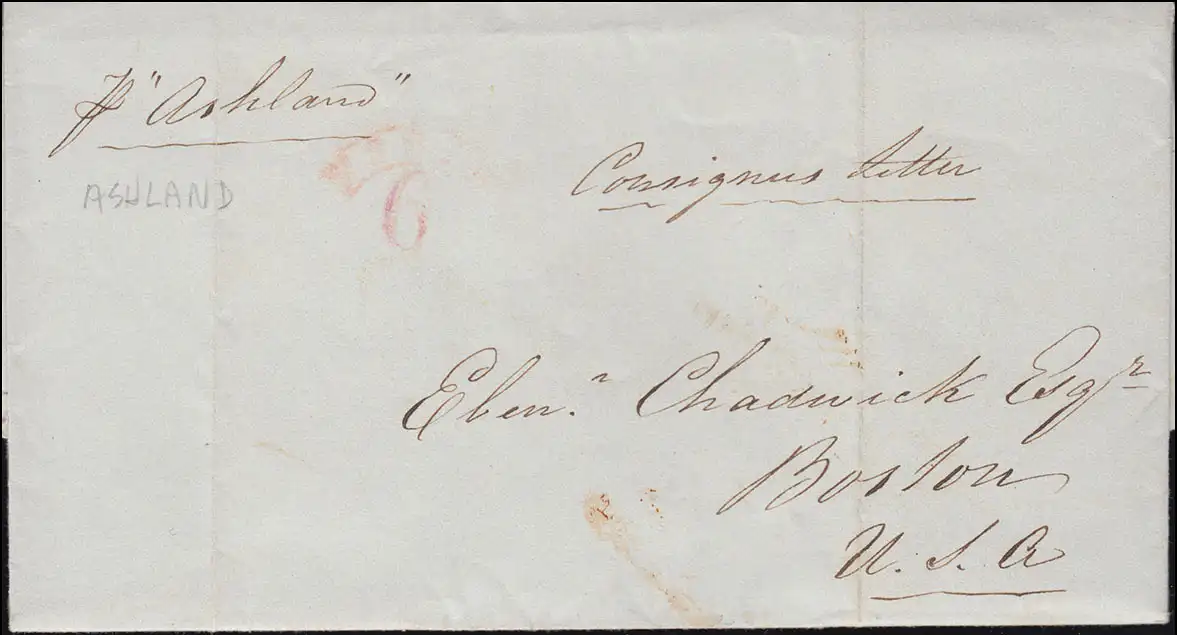 pr "Ashland"
ASHLAND
6
Consignees Letter
Ebenr. Chadwick Esqr
Boston
U. S. A